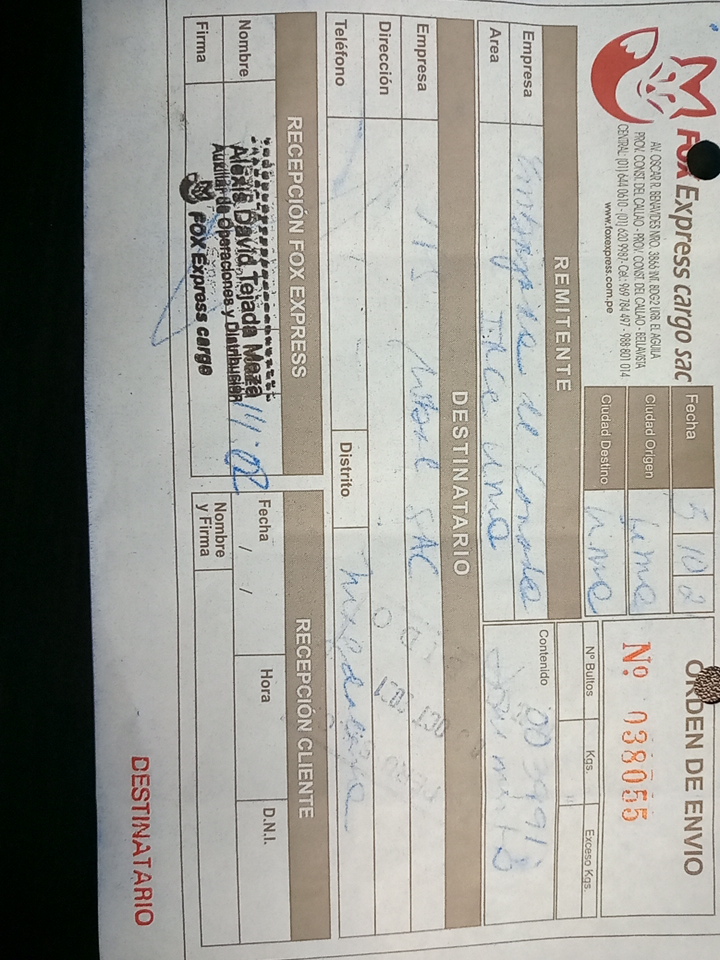 FOX Express cargo sac
AV. OSCAR R. BENAVIDES NRO. 3866 INT. BDG2 URB. EL AGUILA
PROV. CONST. DEL CALLAO - PROV. CONST. DEL CALLAO - BELLAVISTA
CENTRAL: (01) 644 0610 - (01) 620 9987- Cel.: 969 784 497 - 988 801 014
www.foxexpress.com.pe
Fecha 5 10 2
Ciudad Origen Lima
Ciudad Destino Lima
ORDEN DE ENVIO
Nº 038055
REMITENTE
Empresa Embajada de Canada
Area
Nº Bultos Kgs. Exceso Kgs.
Contenido
DESTINATARIO
Empresa SAC
Dirección
Teléfono
Distrito
RECEPCIÓN FOX EXPRESS
Nombre
Alexis David Tejada Meza
Auxiliar de Operaciones y Distribución
FOX Express cargo
Firma
11:02
RECEPCIÓN CLIENTE
Fecha / / Hora D.N.I.
Nombre y Firma
OCT 2021
PERU
DESTINATARIO